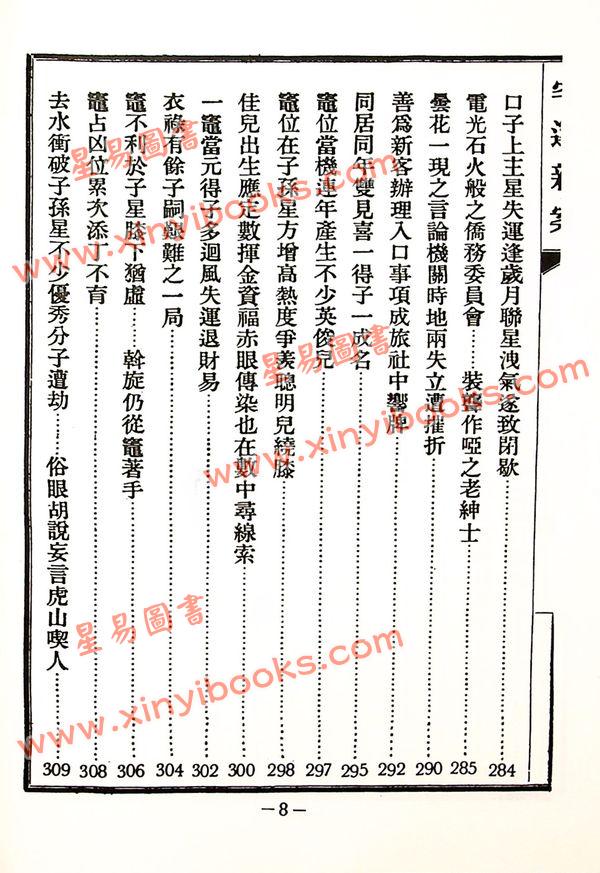 宅運新案
口子上主星失運逢歲月聯星洩氣遂致閉歇……284
電光石火般之僑務委員會……裝聾作啞之老紳士……285
曇花一現之言論機關時地兩失立遭摧折……290
善爲新客辦理入口事項成旅社中響牌……292
同居同年雙見喜一得子一成名……295
竈位當機連年產生不少英俊兒……297
竈位在子孫星方增高熱度爭羨聰明兒繞膝……298
佳兒出生應定數揮金資福赤眼傳染也在數中尋線索……300
一竈當元得子多迴風失運退財易……302
衣祿有餘子嗣艱難之一局……304
竈不利於子星膝下猶虛……斡旋仍從竈著手……306
竈占凶位累次添丁不育……308
去水衝破子孫星不少優秀分子遭劫……俗眼胡說妄言虎山喫人……309
—8—
星易圖書
www.xinyibooks.com
星易圖書
www.xinyibooks.com
星易圖書
www.xinyibooks.com